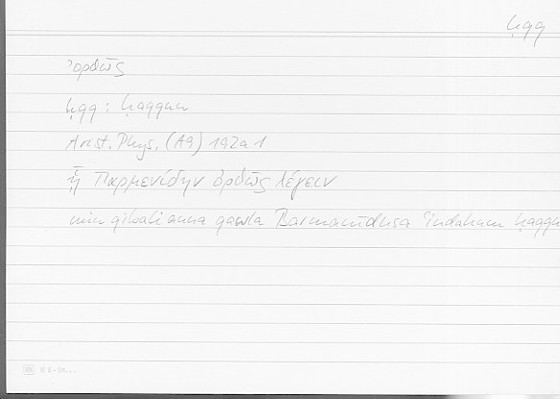 ḥqq
ὀρθῶς
ḥqq : ḥaqqun
Arist. Phys. (A9) 192a1
ᾗ Παρμενίδην ὀρθῶς λέγειν
min qibali anna qawla Barmanīdusa ʿindahum ḥaqqun